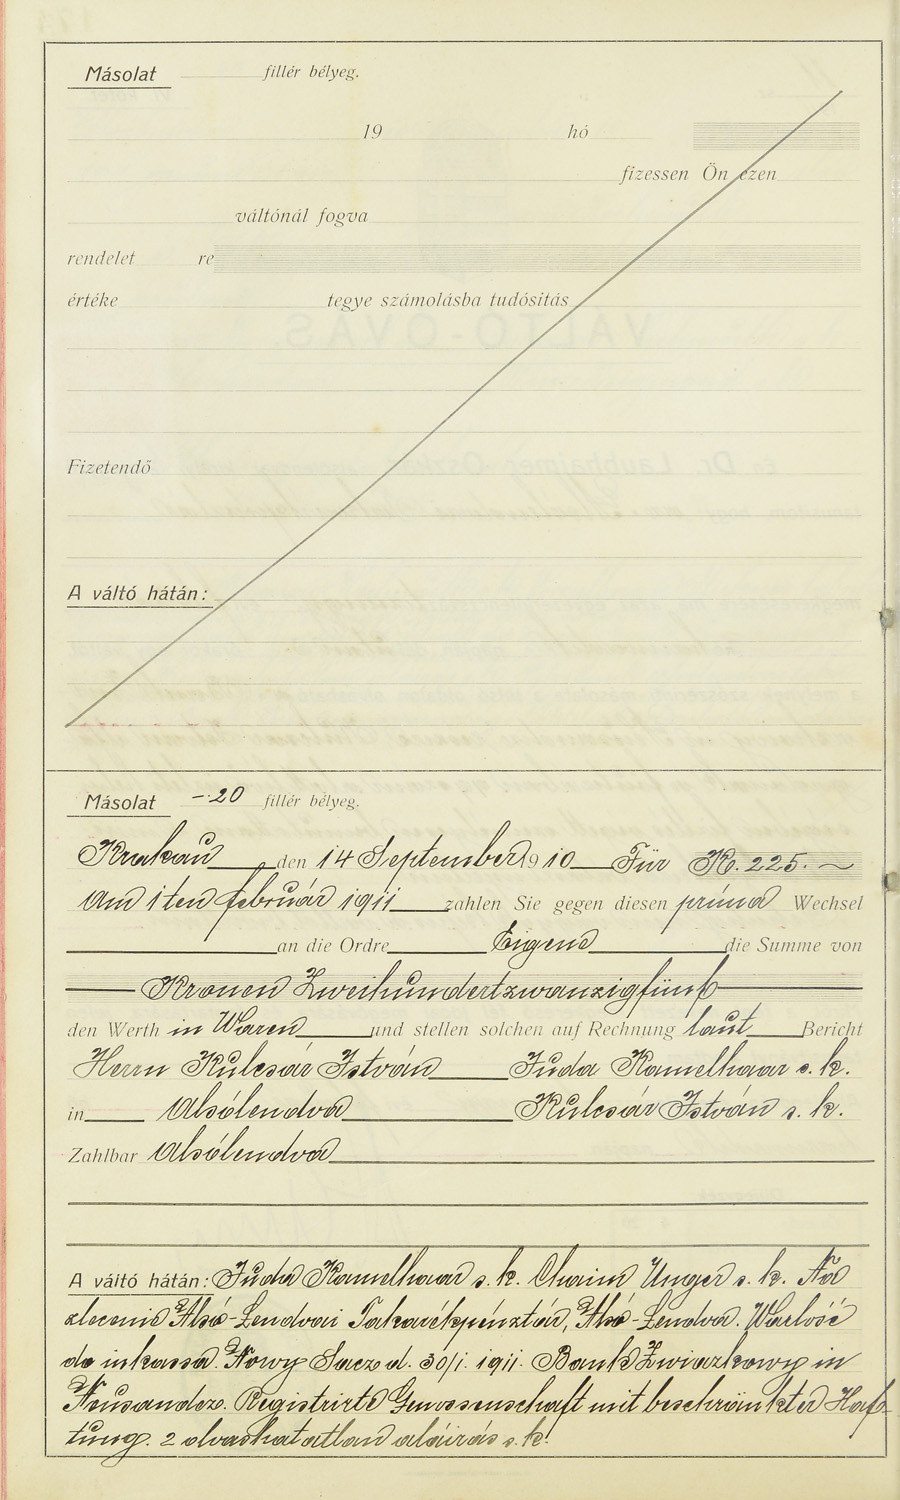 Másolat fillér bélyeg.
19 hó
fizessen Ön ezen
váltónál fogva
rendelet re
értéke tegye számolásba tudósitás
Fizetendő
A váltó hátán:
Másolat -·20 fillér bélyeg.
Krakau den 14 September 1910 Für K. 225.
am 1ten február 1911 zahlen Sie gegen diesen príma Wechsel
an die Ordre Eigene die Summe von
Kronen Zweihundertzwanzigfünf
den Werth in Waren und stellen solchen auf Rechnung laut Bericht
Herrn Kulcsár István Juda Kamelhaar s. k.
in Alsólendva Kulcsár István s. k.
Zahlbar Alsólendva
A váltó hátán: Juda Kamelhaar s. k. Chaim Unger s. k. Na
zlecenie Alsó-Lendvai Takarékpénztár, Alsó-Lendva. Wartość
do inkassa. Nowy Sacz d. 30/I. 1911. Bank Zwiazkowy in
Neusandez. Registrirte Genossenschaft mit beschränkter Haf-
tung. 2 olvashatatlan aláirás s. k.